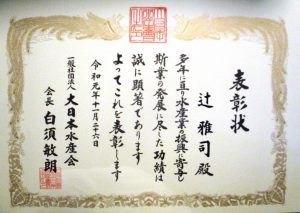 表彰状
辻雅司殿
多年に亘り水産業の振興に寄与し
斯業の発展に尽した功績は
誠に顕著であります
よってこれを表彰します
令和元年十一月二十六日
一般社団法人 大日本水産会
会長 白須敏朗